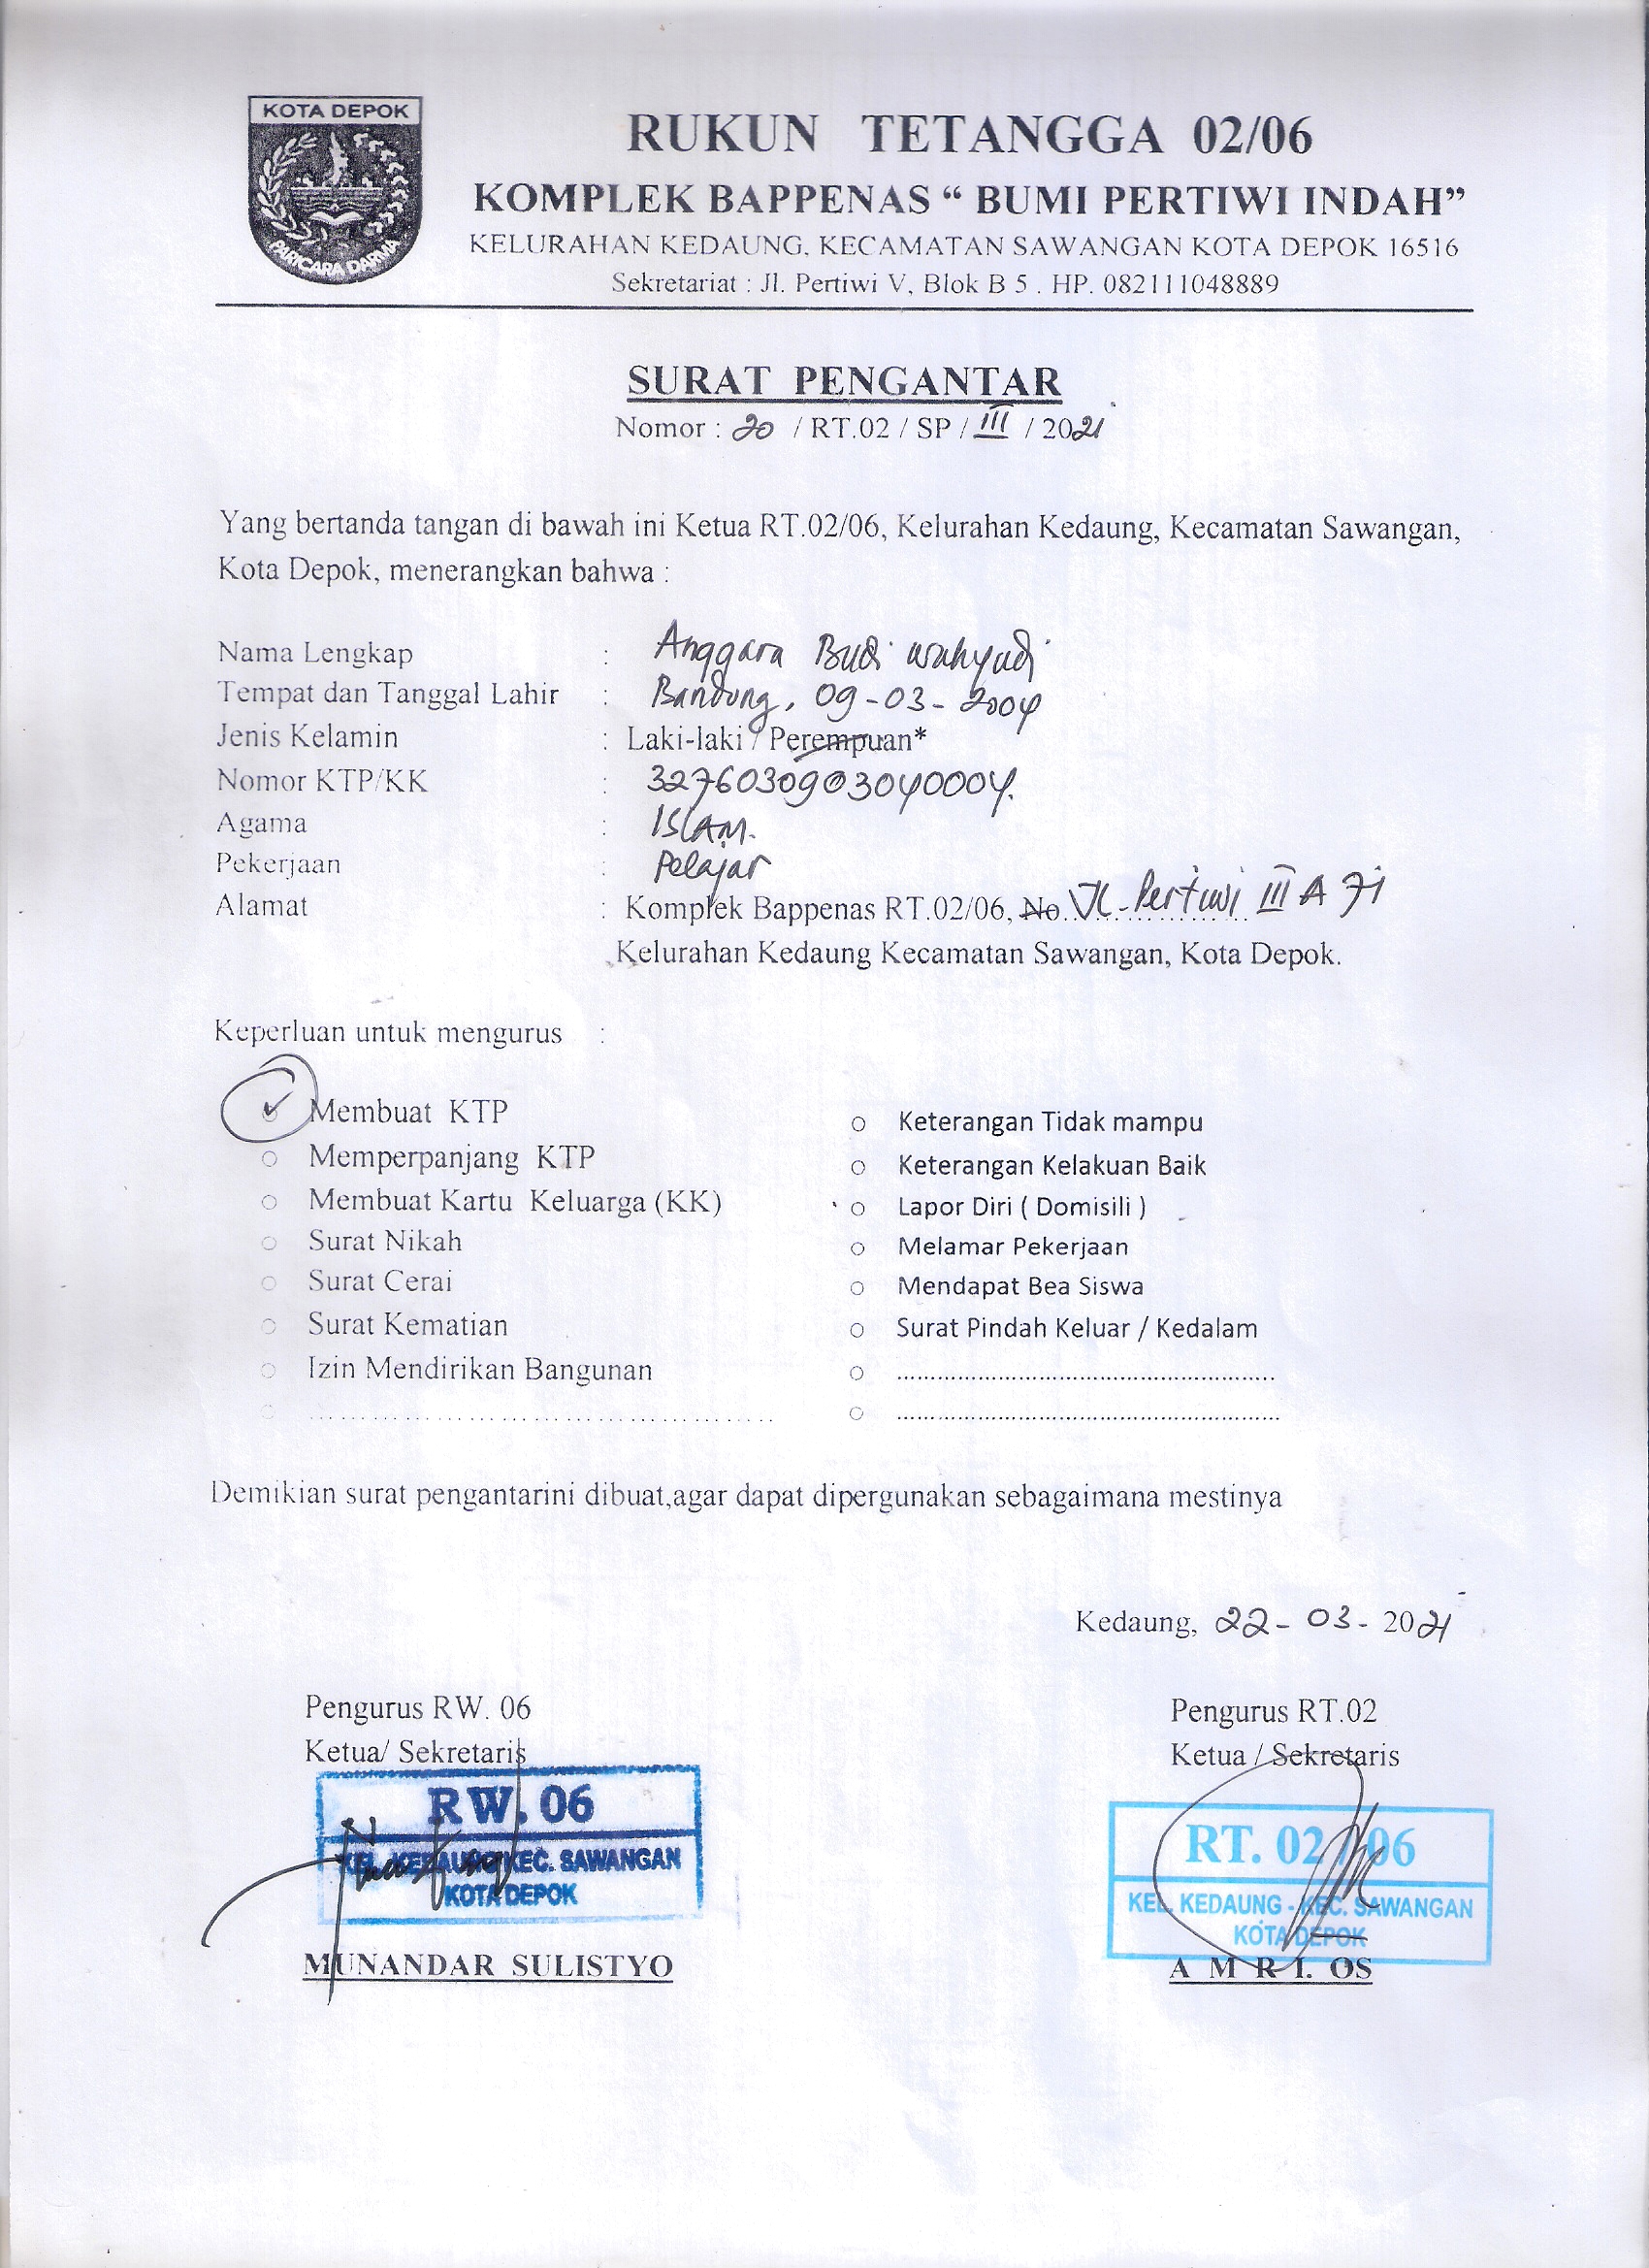 KOTA DEPOK
PARICARA DARMA
RUKUN TETANGGA 02/06
KOMPLEK BAPPENAS “ BUMI PERTIWI INDAH”
KELURAHAN KEDAUNG, KECAMATAN SAWANGAN KOTA DEPOK 16516
Sekretariat : Jl. Pertiwi V, Blok B 5 . HP. 082111048889
SURAT PENGANTAR
Nomor : 20 / RT.02 / SP / III / 2021
Yang bertanda tangan di bawah ini Ketua RT.02/06, Kelurahan Kedaung, Kecamatan Sawangan,
Kota Depok, menerangkan bahwa :
Nama Lengkap : Anggara Budi wahyudi
Tempat dan Tanggal Lahir : Bandung, 09-03-2004
Jenis Kelamin : Laki-laki / Perempuan*
Nomor KTP/KK : 3276030903040004.
Agama : ISLAM.
Pekerjaan : Pelajar
Alamat : Komplek Bappenas RT.02/06, No JL. Pertiwi III A 71
Kelurahan Kedaung Kecamatan Sawangan, Kota Depok.
Keperluan untuk mengurus :
✓ Membuat KTP
○ Memperpanjang KTP
○ Membuat Kartu Keluarga (KK)
○ Surat Nikah
○ Surat Cerai
○ Surat Kematian
○ Izin Mendirikan Bangunan
○ ........................................
○ Keterangan Tidak mampu
○ Keterangan Kelakuan Baik
○ Lapor Diri ( Domisili )
○ Melamar Pekerjaan
○ Mendapat Bea Siswa
○ Surat Pindah Keluar / Kedalam
○ ........................................
○ ........................................
Demikian surat pengantarini dibuat,agar dapat dipergunakan sebagaimana mestinya
Kedaung, 22-03-2021
Pengurus RW. 06
Ketua/ Sekretaris
RW. 06
KEL. KEDAUNG KEC. SAWANGAN
KOTA DEPOK
MUNANDAR SULISTYO
Pengurus RT.02
Ketua / Sekretaris
RT. 02 / 06
KEL. KEDAUNG - KEC. SAWANGAN
KOTA DEPOK
A M R I. OS